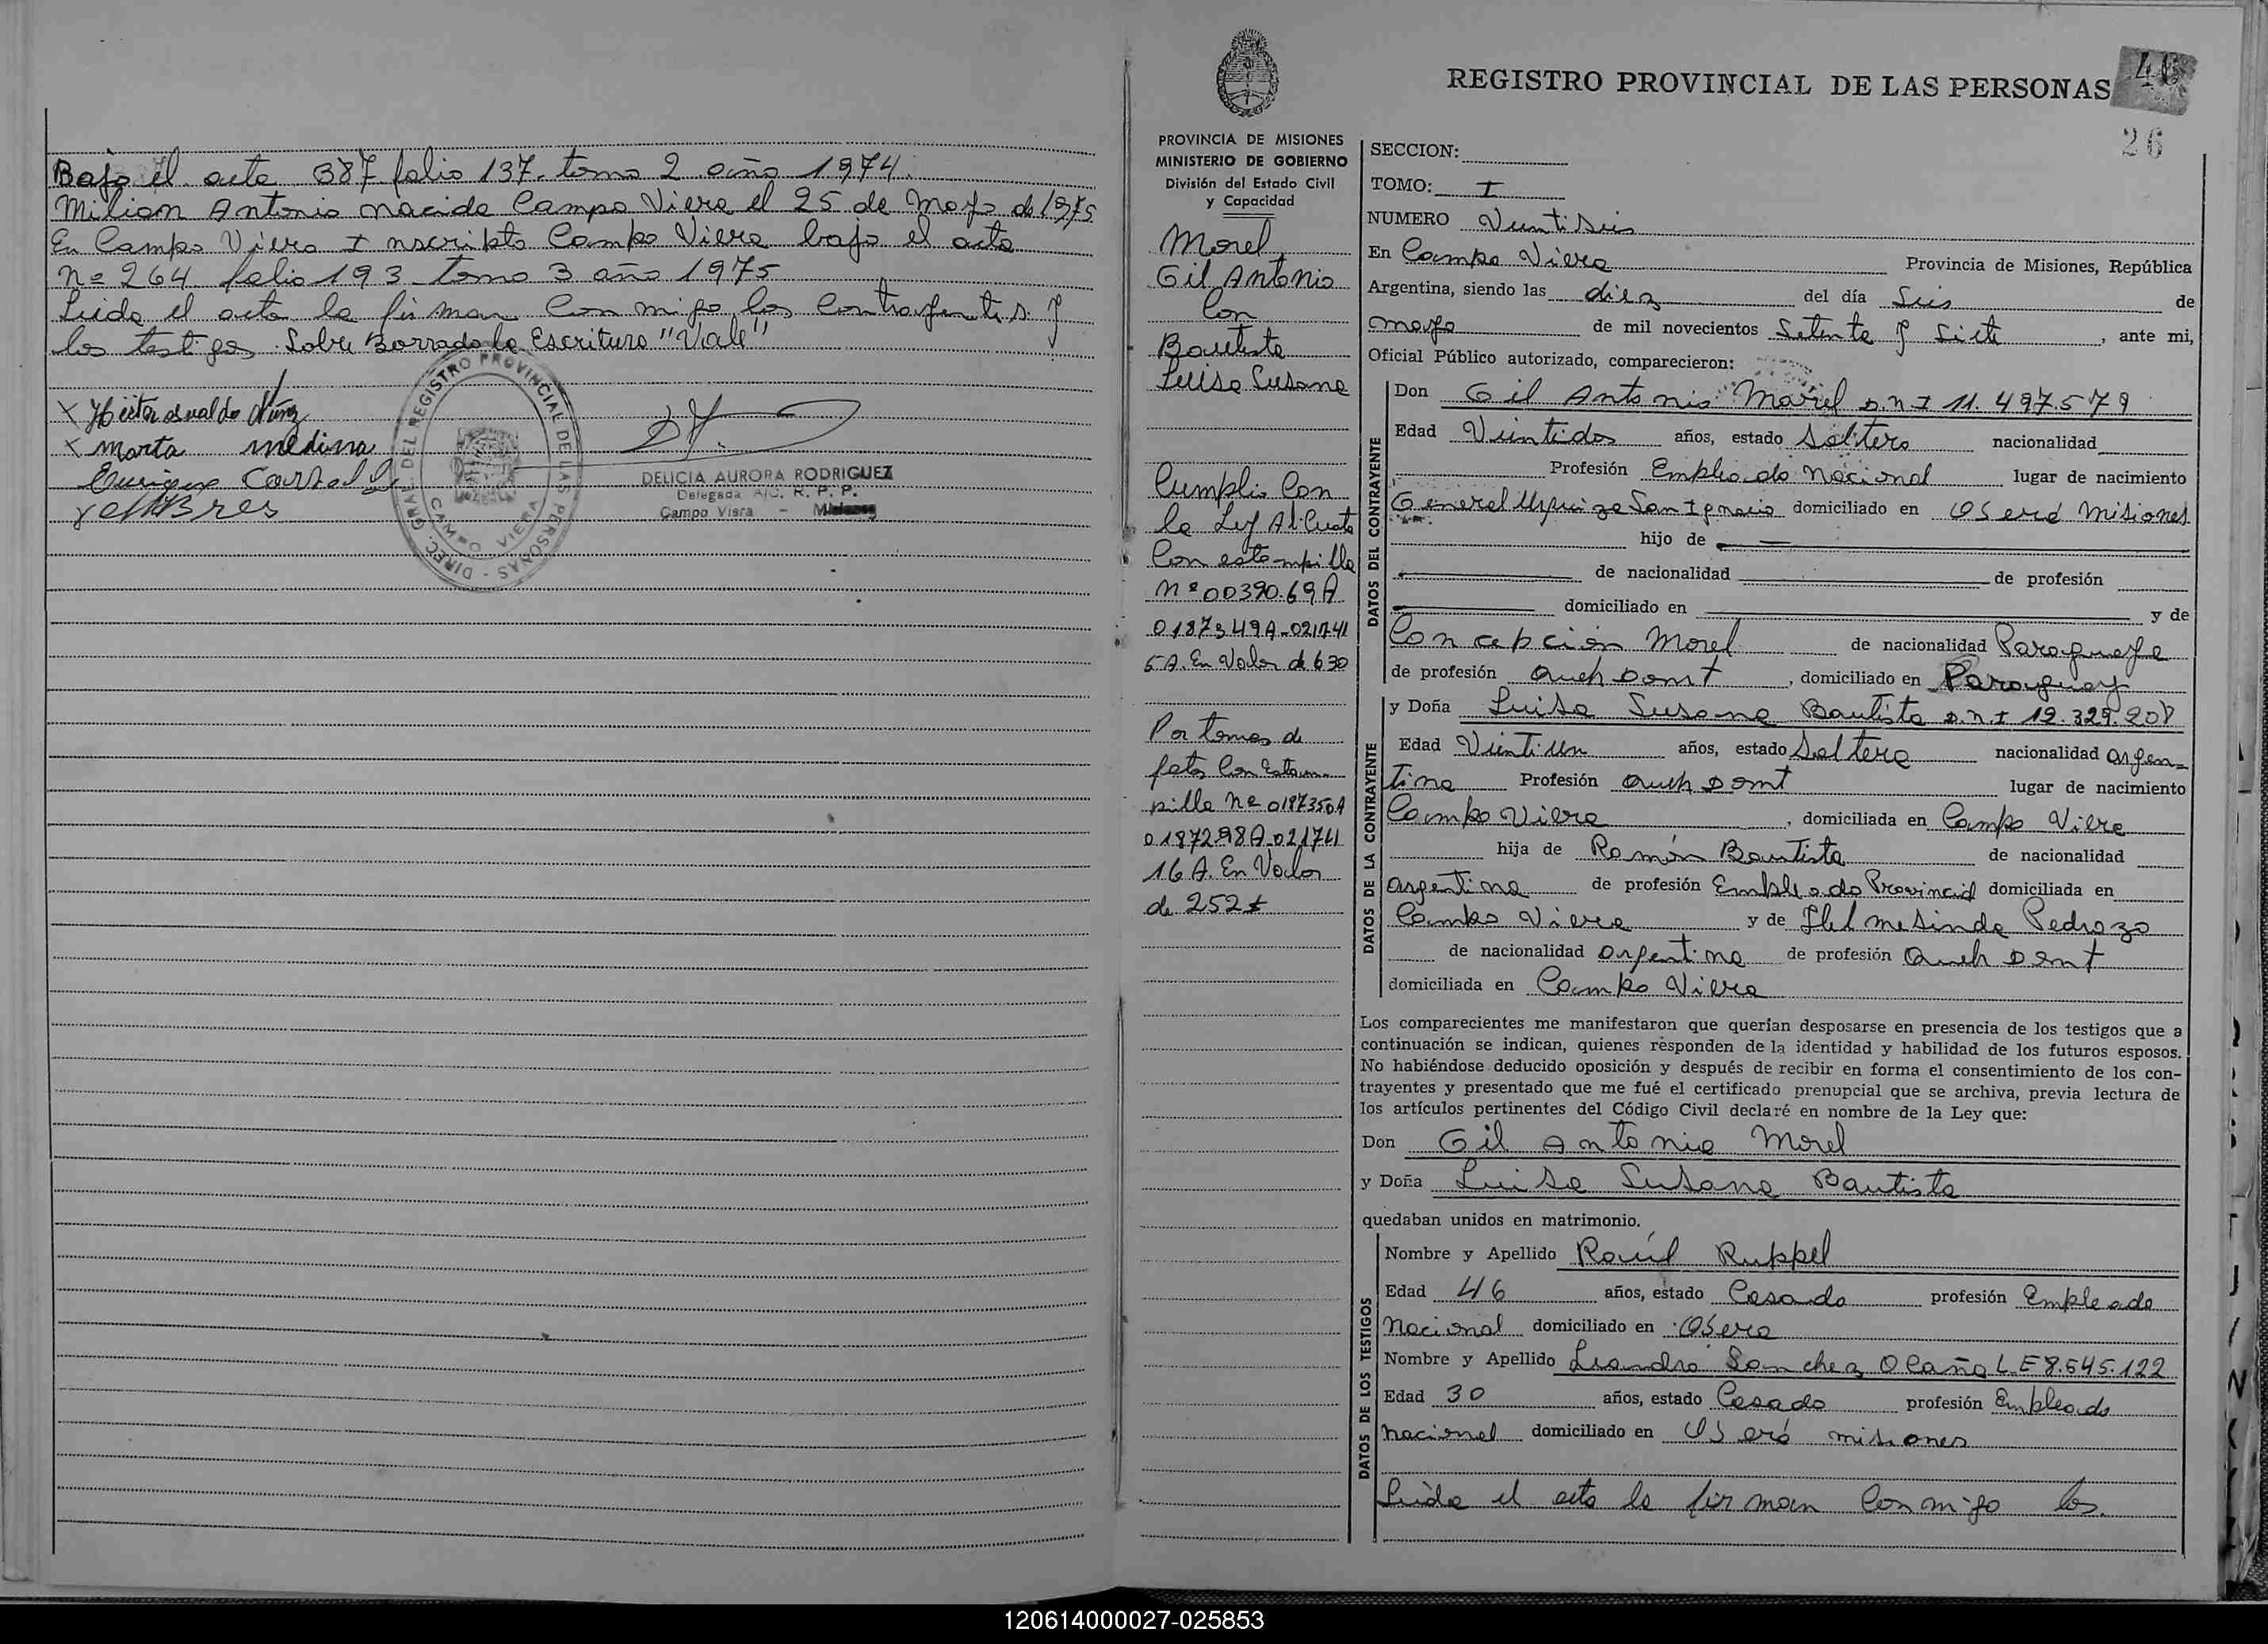 Bajo el acta 387 folio 137 tomo 2 año 1974.
Milion Antonio nacido Campo Viera el 25 de Mayo de 1975
En Campo Viera Inscripto Campo Viera bajo el acta
nº 264 folio 193 tomo 3 año 1975
Leida el acta la firman conmigo los contrayentes y
los testigos. Sobre Borrado la Escritura "Vale"
x Hector osvaldo Núñz
x marta medina
DIREC. GRAL. DEL REGISTRO PROVINCIAL DE LAS PERSONAS
CAMPO VIERA
DELICIA AURORA RODRIGUEZ
Delegada A/C. R. P. P.
Campo Viera - Misiones
REGISTRO PROVINCIAL DE LAS PERSONAS
46
26
PROVINCIA DE MISIONES
MINISTERIO DE GOBIERNO
División del Estado Civil
y Capacidad
Morel
Gil Antonio
Con
Bautista
Luisa Susana
Cumplio Con
la Ley Al. Cuota
Con estampilla
Nº 0039069A
0187349A-021741
5A. En Valor de 630
Por tomas de
fotos Con Estam-
pilla Nº 0187350A
0187298A-021741
16 A. En Valor
de 252$
SECCION:
TOMO: I
NUMERO Veintiseis
En Campo Viera Provincia de Misiones, República
Argentina, siendo las diez del día Seis de
mayo de mil novecientos Setenta y Siete, ante mi,
Oficial Público autorizado, comparecieron:
DATOS DEL CONTRAYENTE
Don Gil Antonio Morel D.N.I 11.497.579
Edad Veintidos años, estado Soltero nacionalidad
Profesión Empleado Nacional lugar de nacimiento
General Urquiza San Ignacio domiciliado en Oberá Misiones
hijo de
de nacionalidad de profesión
domiciliado en y de
Concepción Morel de nacionalidad Paraguaya
de profesión Queh Domt, domiciliado en Paraguay
DATOS DE LA CONTRAYENTE
y Doña Luisa Susana Bautista D.N.I 12.329.208
Edad Veintiun años, estado Soltera nacionalidad Argen-
tina Profesión Queh Domt lugar de nacimiento
Campo Viera, domiciliada en Campo Viera
hija de Ramón Bautista de nacionalidad
Argentina de profesión Empleado Provincial domiciliada en
Campo Viera y de Helmesinda Pedrozo
de nacionalidad Argentina de profesión Queh Domt
domiciliada en Campo Viera
Los comparecientes me manifestaron que querían desposarse en presencia de los testigos que a
continuación se indican, quienes responden de la identidad y habilidad de los futuros esposos.
No habiéndose deducido oposición y después de recibir en forma el consentimiento de los con-
trayentes y presentado que me fué el certificado prenupcial que se archiva, previa lectura de
los artículos pertinentes del Código Civil declaré en nombre de la Ley que:
Don Gil Antonio Morel
y Doña Luisa Susana Bautista
quedaban unidos en matrimonio.
DATOS DE LOS TESTIGOS
Nombre y Apellido Raúl Ruppel
Edad 46 años, estado Casado profesión Empleado
Nacional domiciliado en Obera
Nombre y Apellido Leandro Sanchez Ocaña L.E 8.545.122
Edad 30 años, estado Casado profesión Empleado
nacional domiciliado en Oberá misiones
Leida el acta la firman Conmigo los
120614000027-025853